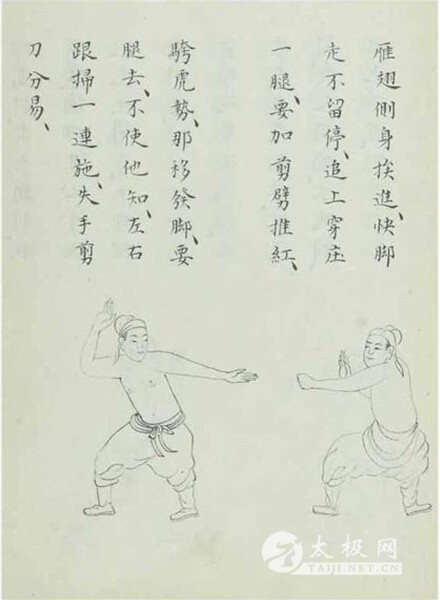 雁翅側身挨進、快脚
走不留停、追上穿庄
一腿、要加剪劈推紅、
騎虎勢、那移發脚、要
腿去、不使他知、左右
跟掃一連施、失手剪
刀分易、
太极网
TAIJI.NET.CN